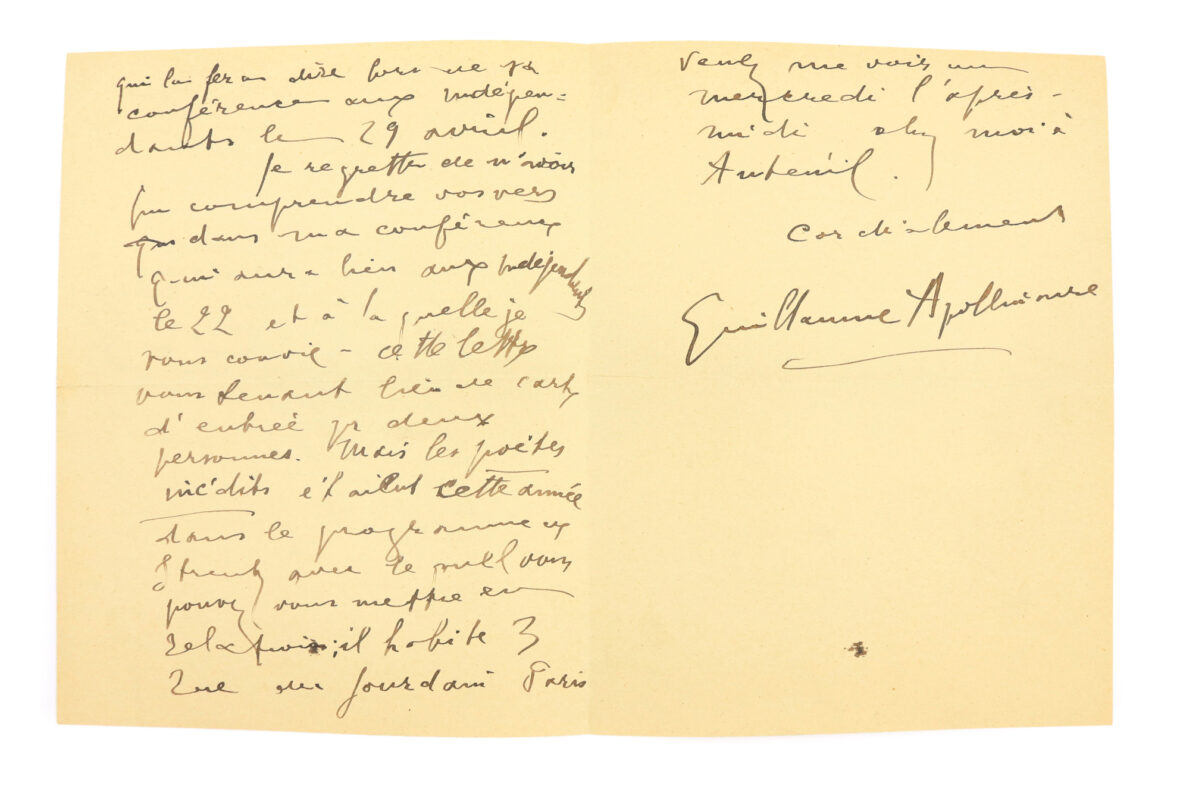 qui la fera dire lors de sa
conférence aux Indépen=
dants le 29 avril.
Je regrette de n'avoir
pu comprendre vos vers
dans ma conférence
qui aura lieu aux Indépendants
le 22 et à laquelle je
vous convie - cette lettre
vous tenant lieu de carte
d'entrée pr deux
personnes. Mais les poètes
inédits étaient cette année
dans le programme de
avec lequel vous
pouvez vous mettre en
relation; il habite 3
rue du Jourdain Paris
Venez me voir un
mercredi l'après-
midi chez moi à
Auteuil.
Cordialement
Guillaume Apollinaire